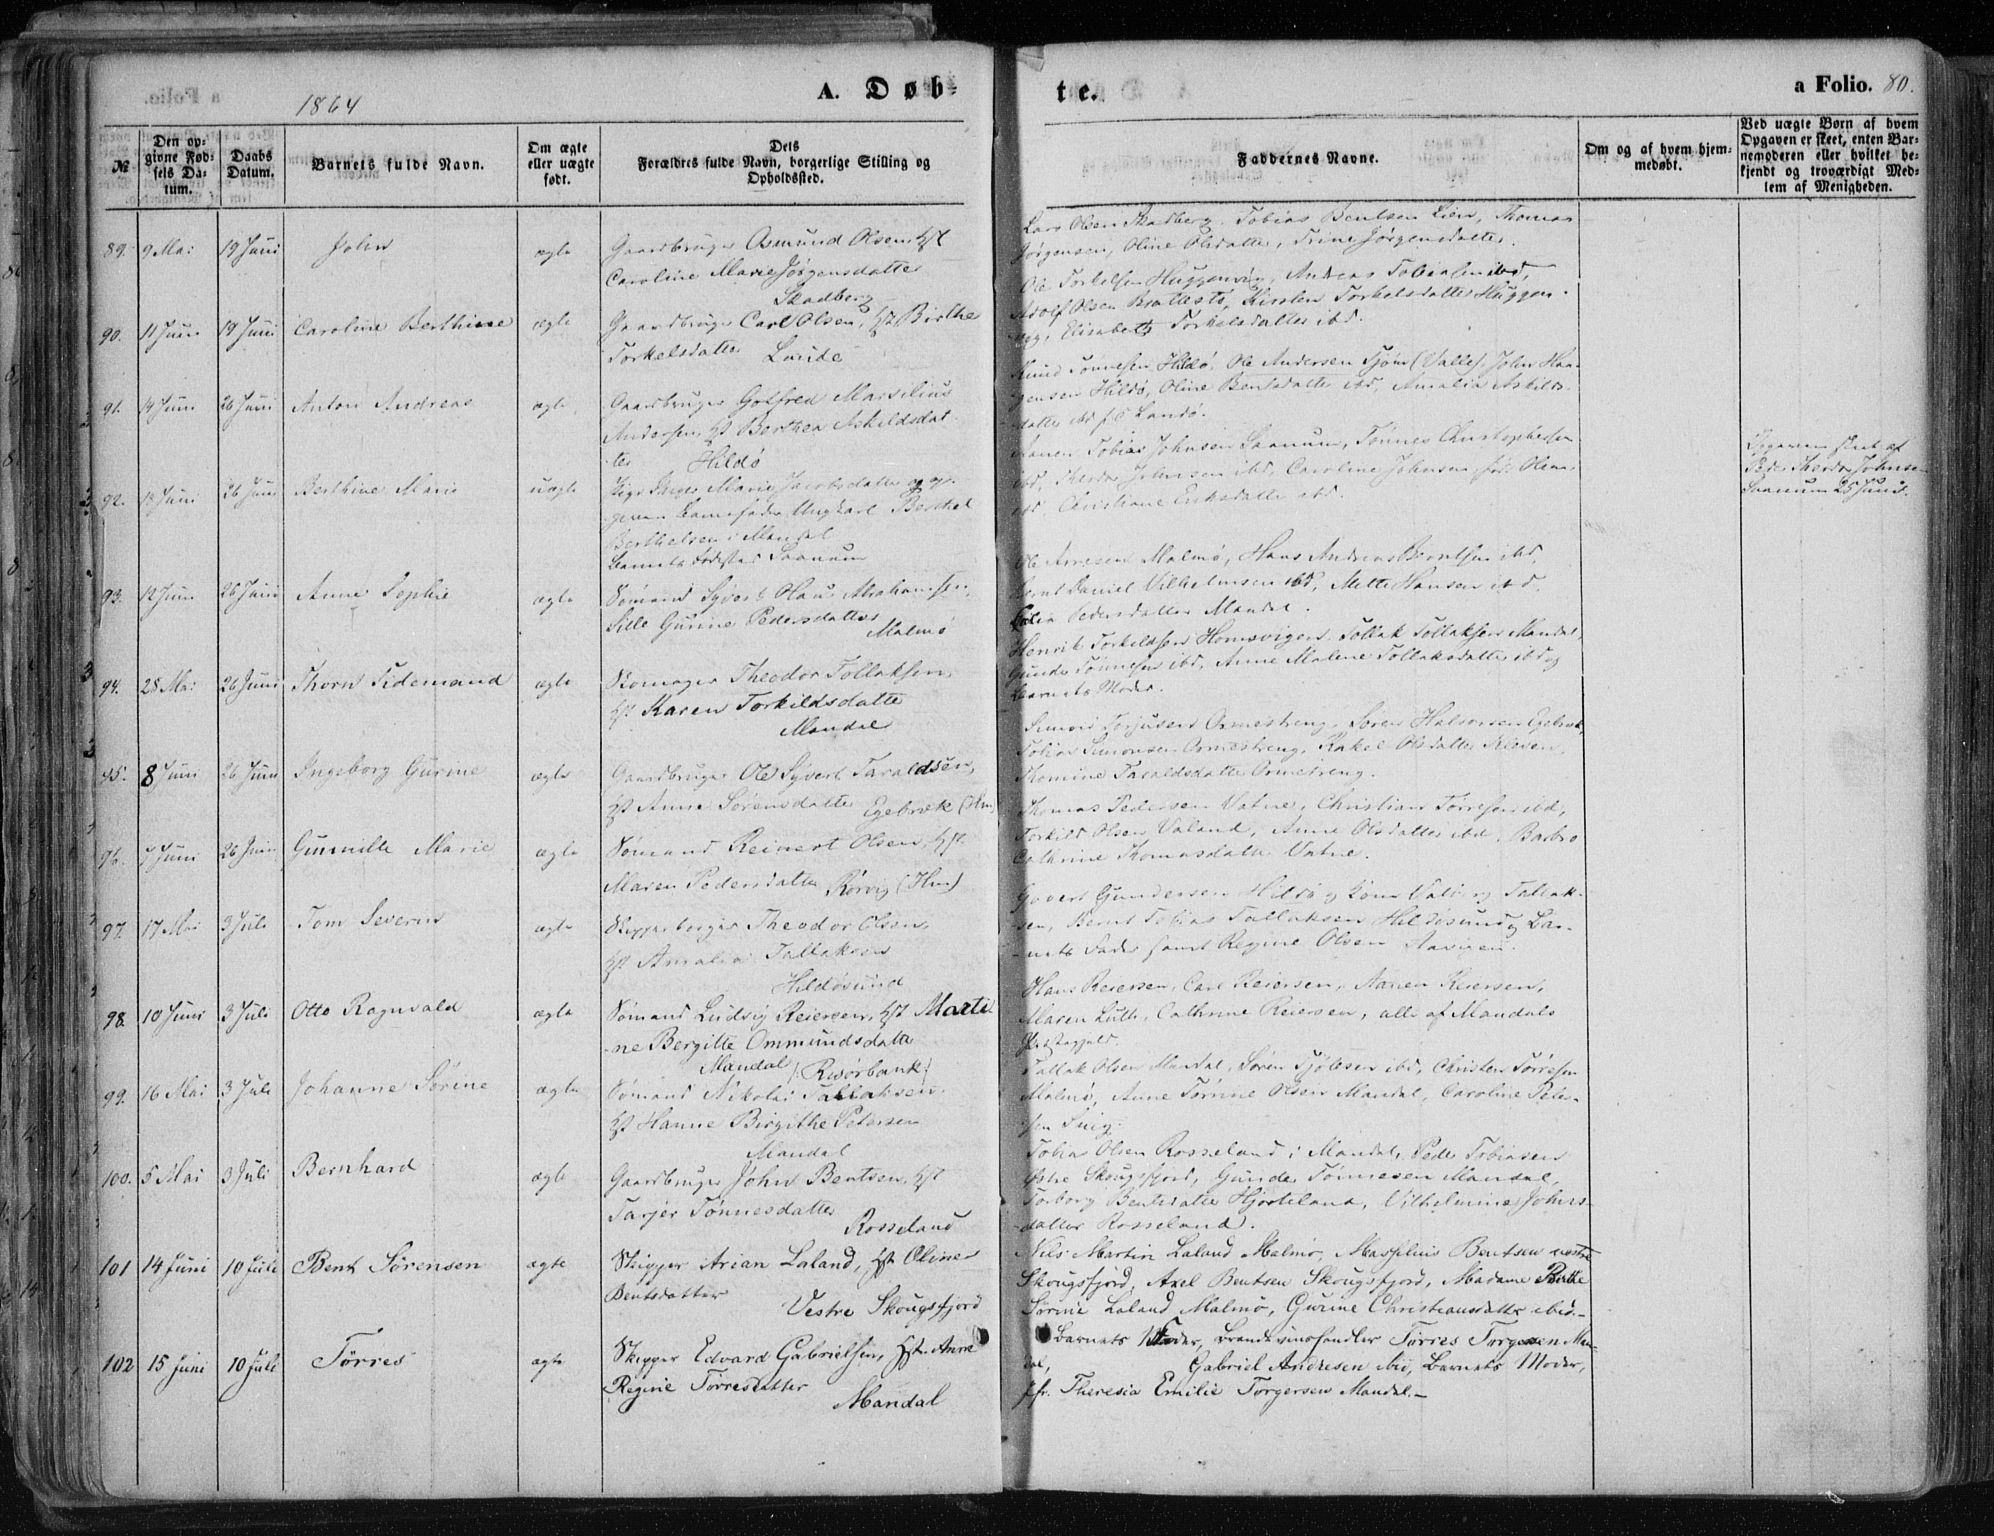 1864
A. Døb-
te.
a Folio. 80.
№
Den op-
givne Fød-
sels Da-
tum.
Daabs
Datum.
Barnets fulde Navn.
Om ægte
eller uægte
født.
Dets
Forældres fulde Navn, borgerlige Stilling og
Opholdssted.
Faddernes Navne.
Om og af hvem hjem-
medøbt.
Ved uægte Børn af hvem
Opgaven er skeet, enten Bar-
nemoderen eller hvilket be-
kjendt og troværdigt Med-
lem af Menigheden.
89. 9 Mai 19 Juni John ægte Gaardbruger Osmund Olsen, Hst
Caroline Marie Jørgensdatter
Skadberg
Lars Olsen Skadberg. Tobias Bentsen Lien, Thomas
Jørgensen, Oline Olsdatter, Trine Jørgensdatter.
90. 11 Juni 19 Juni Caroline Berthine ægte Gaardbruger Carl Olsen, Hst Birthe
Torkelsdatter Lande
Ole Torkelsen Huggenvig, Andreas Tobiasen ibd,
Adolf Olsen Brattestø, Kirsten Torkelsdatter Huggen-
vig, Elisabeth Torkelsdatter ibd.
91. 19 Juni 26 Juni Anton Andreas ægte Gaardbruger Gotfred Marselius
Andersen, Hst Berthea Askildsdat-
ter Hildø
Knud Tønnesen Hildø, Ole Andersen (Valle), John Haa-
gensen Hildø, Oline Bentsdatter ibd, Amalia Askilds-
datter ibd
92. 13 Juni 26 Juni Berthine Marie uægte Pige Inger Marie Jacobsdatter og op-
given Barnefader Ungkarl Berthel
Berthelsen i Mandal
Barnets Fødested Saanum
Aanen Tobias Johnsen Saanum, Tønnes Christophersen
ibd, Johnsen ibd, Caroline Johnsen
ibd, Christiane Eriksdatter ibd.
Opgaven skeet af
Peder Theodor Johnsen
Saanum 25 Juni.
93. 12 Juni 26 Juni Anne Sophie ægte Sømand Syvert Olaus Abrahamsen,
Sille Gurine Pedersdatter
Malmø
Ole Arnesen Malmø, Hans Andreas Berntsen ibd,
Bernt Daniel Vilhelmsen ibd, Mette Hansen ibd,
Pedersdatter Mandal.
94. 28 Mai 26 Juni Thorn Tidemand ægte Skomager Theodor Tollaksen,
Hst. Karen Torkildsdatter
Mandal
Henrik Torkildsen Homsvigen. Tollak Tollaksen Mandal,
Gunder Tønnesen ibd, Anne Malene Tollaksdatter ibd og
Barnets Moder.
95. 8 Juni 26 Juni Ingeborg Gurine ægte Gaardbruger Ole Syvert Taraldsen,
Hst Anne Sørensdatter Egebræk (Hm)
Simon Terjusen Ormestreng, Søren Halvorsen Egebræk,
Tobias Simonsen Ormestreng, Rakel Olsdatter Kleven,
Thomine Taraldsdatter Ormestreng.
96. 7 Juni 26 Juni Gunnille Marie ægte Sømand Reinert Olsen, Hst.
Maren Pedersdatter Rørvig (Hm)
Thomas Pedersen Vatne, Christian Tørresen ibd,
Torkild Olsen Valand, Anne Olsdatter ibd. Barbro
Cathrine Thomasdatter Vatne.
97. 17 Mai 3 Juli Tom Severin ægte Skipperborger Theodor Olsen,
Hst Amalia Tallaksen
Hildøsund
Govert Gundersen Hildø, Tallak-
sen, Bernt Tobias Tallaksen Hildøsund, Bar-
nets Fader samt Regine Olsen
98. 10 Juni 3 Juli Otto Ragnvald ægte Sømand Ludvig Reiersen, Hst Marti
-ne Bergitte Ommundsdatter
Mandal (Risørbank)
Hans Reiersen, Carl Reiersen, Aanen Reiersen,
Maren Luth, Cathrine Reiersen, alle af Mandals
Præstegjeld.
99. 16 Mai 3 Juli Johanne Sørine ægte Sømand Nikolai Tallaksen,
Hst Hanne Birgithe Petersen
Mandal
Tallak Olsen Mandal, Søren ibd, Christen Tørresen
Malmø, Anne Tørrine Olsen Mandal, Caroline Peter-
sen
100. 5 Mai 3 Juli Bernhard ægte Gaardbruger John Bentsen, Hst
Tarjer Tønnesdatter
Rosseland
Tobias Olsen Rosseland i Mandal, Peder Tobiasen
Østre Skougsfjord, Gunder Tønnesen Mandal,
Torborg Bentsdatter Hjorteland, Vilhelmine Johns-
datter Rosseland.
101 14 Juni 10 Juli Bent Sørensen ægte Skipper Arian Laland, Hst Oline
Bentsdatter
Vestre Skougsfjord
Nils Martin Laland Malmø, Masselius Bentsen vestre
Skougsfjord, Axel Bentsen Skougsfjord, Madame Berthe
Sørine Laland Malmø, Gurine Christiansdatter ibid.-
102 15 Juni 10 Juli Tørres ægte Skipper Edvard Gabrielsen, Hst. Anne
Regine Tørresdatter
Mandal
Barnets Fader, Brændevinshandler Tørres Torgersen Man-
dal, Gabriel Andresen ibid, Barnets Moder,
Jfr. Theresia Emilie Torgersen Mandal.-